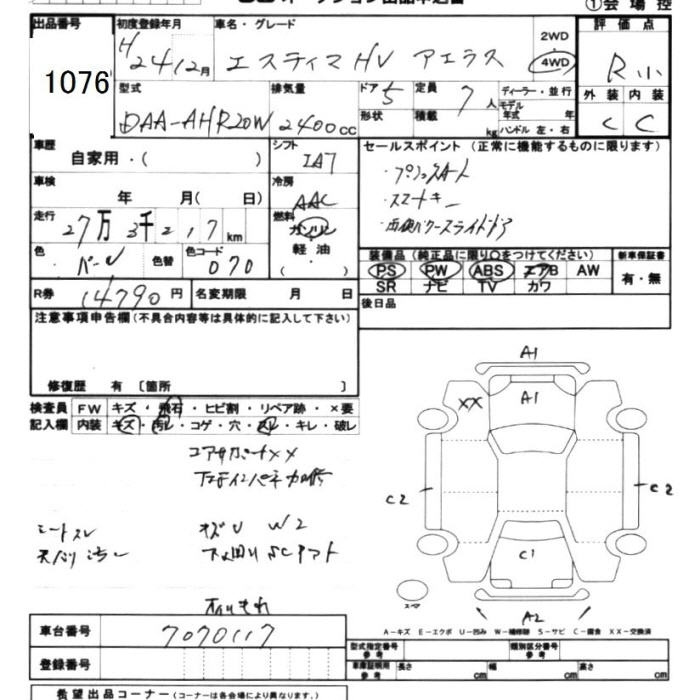 ①会場控
出品番号 初度登録年月 車名・グレード 評価点
1076
H 24 12月 エスティマHV アエラス 2WD 4WD R小
型式 排気量 ドア 定員 ディーラー・並行 外装 内装
DAA-AHR20W 2400cc 5 形状 積載 7人 kg モデル年式 年 ハンドル 左・右 C C
車歴 シフト セールスポイント (正常に機能するものに限ります)
自家用・( ) IA7
・プッシュスタート
車検 冷房
年 月( 日) AAC
・スマートキー
走行 燃料
27万3千217km ガソリン
・両側パワースライドドア
色 色替 色コード 軽油
パール 070 ( )
装備品 (純正品に限り○をつけてください) 新車保証書
PS PW ABS エアB AW 有・無
SR ナビ TV カワ
R券 14790円 名変期限 月 日
後日品
注意事項申告欄 (不具合内容等は具体的に記入して下さい)
修復歴 有 〔箇所 〕
検査員 FW キズ・飛石・ヒビ割・リペア跡・×要
記入欄 内装 キズ・汚レ・コゲ・穴・スレ・キレ・破レ
コアサポートXX
シートスレ キズU W2
天バリ汚レ 下廻りSCアト
オイルもれ
A1
A1
XX
C2
C2
C1
スペア
A2
A-キズ E-エクボ U-凹み W-補修跡 S-サビ C-腐食 XX-交換済
車台番号 7070117
登録番号
型式指定番号 参考 類別区分番号 参考
車庫証明用 参考 長さ cm 幅 cm 高さ cm
希望出品コーナー (コーナーは各会場により異なります。)